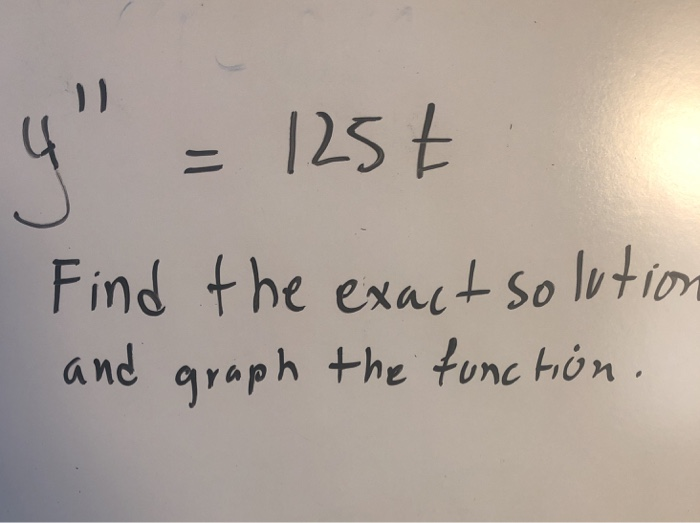 y'' = 125t
Find the exact solution
and graph the function.